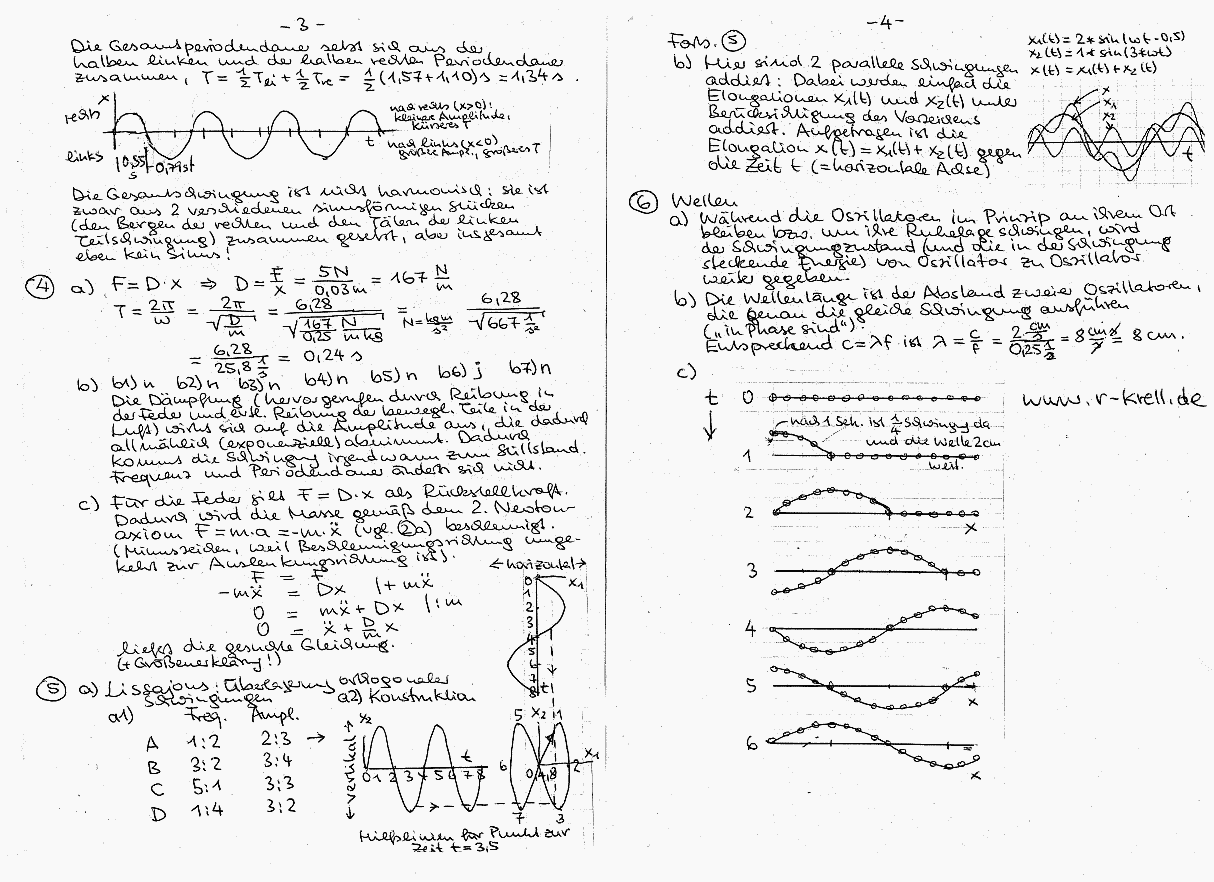 - 3 -
Die Gesamtperiodendauer setzt sich aus der
halben linken und der halben rechten Periodendauer
zusammen, T = ½ Tli + ½ Tre = ½ (1,57+1,10)s = 1,34s.
x
rechts
links
t
0,55s
0,79s
nach rechts (x>0):
kleinere Amplitude,
kürzeres T
nach links (x<0)
größere Ampl., größeres T
Die Gesamtschwingung ist nicht harmonisch: sie ist
zwar aus 2 verschiedenen sinusförmigen Stücken
(den Bergen der rechten und den Tälern der linken
Teilschwingung) zusammen gesetzt, aber insgesamt
eben kein Sinus!
4 a) F = D·x ⇒ D = F/x = 5N/0,03m = 167 N/m
T = 2π/ω = 2π/√(D/m) = 6,28/√(167/0,25 N/(m kg)) = N=kgm/s² 6,28/√(667 1/s²)
= 6,28/(25,8 1/s) = 0,24 s
b) b1) n b2) n b3) n b4) n b5) n b6) j b7) n
Die Dämpfung (hervorgerufen durch Reibung in
der Feder und evtl. Reibung der bewegl. Teile in der
Luft) wirkt sich auf die Amplitude aus, die dadurch
allmählich (exponenziell) abnimmt. Dadurch
kommt die Schwingung irgendwann zum Stillstand.
Frequenz und Periodendauer ändern sich nicht.
c) Für die Feder gilt F = D·x als Rückstellkraft.
Dadurch wird die Masse gemäß dem 2. Newton-
axiom F = m·a = -m·ẍ (vgl. 2a) beschleunigt.
(Minuszeichen, weil Beschleunigungsrichtung umge-
kehrt zur Auslenkungsrichtung ist).
F = F
-mẍ = Dx |+mẍ
0 = mẍ + Dx |:m
0 = ẍ + D/m x
liefert die gesuchte Gleichung.
(+Größenerklärung!)
← horizontal →
x1
0
1
2
3
4
5
6
7
8
t
5 a) Lissajous: Überlagerung orthogonaler
Schwingungen
a1) Freq. Ampl.
A 1:2 2:3 →
B 3:2 3:4
C 5:1 3:3
D 1:4 3:2
a2) Konstruktion
← vertikal →
x2
0 1 2 3 4 5 6 7 8
t
5 x2 1
6 0 4,8 2 x1
7 3
Hilfslinien für Punkt zur
Zeit t = 3,5
-4-
Forts. 5
b) Hier sind 2 parallele Schwingungen
addiert: Dabei werden einfach die
Elongationen x1(t) und x2(t) unter
Berücksichtigung des Vorzeichens
addiert. Aufgetragen ist die
Elongation x(t) = x1(t) + x2(t) gegen
die Zeit t (= horizontale Achse)
x1(t) = 2*sin(ωt-0,5)
x2(t) = 1*sin(3*ωt)
x(t) = x1(t)+x2(t)
x
x1
x2
t
6 Wellen
a) Während die Oszillatoren im Prinzip an ihrem Ort
bleiben bzw. um ihre Ruhelage schwingen, wird
der Schwingungszustand (und die in der Schwingung
steckende Energie) von Oszillator zu Oszillator
weiter gegeben.
b) Die Wellenlänge ist der Abstand zweier Oszillatoren,
die genau die gleiche Schwingung ausführen
("in Phase sind").
Entsprechend c = λf ist λ = c/f = (2 cm/s)/(0,25 1/s) = 8 cm·s/s = 8 cm.
c)
t
0
www.r-krell.de
nach 1 Sek. ist ¼ Schwingung da
und die Welle 2cm
weit.
1
2
x
3
4
5
x
6
x